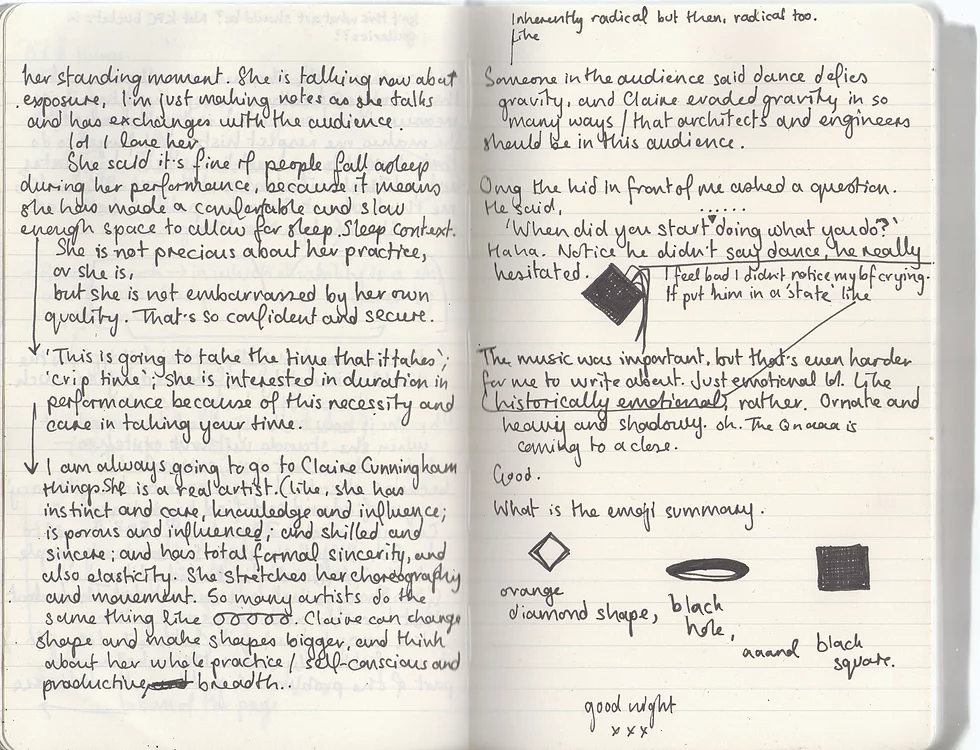 her standing moment. She is talking now about
exposure, I'm just making notes as she talks
and has exchanges with the audience.
lol I love her.
She said it's fine if people fall asleep
during her performance, because it means
she has made a comfortable and slow
enough space to allow for sleep. Sleep context.
She is not precious about her practice,
or she is,
but she is not embarrassed by her own
quality. That's so confident and secure.
'This is going to take the time that it takes';
'crip time'; she is interested in duration in
performance because of this necessity and
care in taking your time.
I am always going to go to Claire Cunningham
things. She is a real artist. (like, she has
instinct and care, knowledge and influence;
is porous and influenced; and skilled and
sincere; and has total formal sincerity, and
also elasticity. She stretches her choreography
and movement. So many artists do the
same thing like ooooo. Claire can change
shape and make shapes bigger, and think
about her whole practice / self-conscious and
productive, breadth..
Inherently radical but then, radical too.
Like
Someone in the audience said dance defies
gravity, and Claire evaded gravity in so
many ways / that architects and engineers
should be in this audience.
Omg the kid in front of me asked a question.
He said, ......
'When did you start doing what you do?'
Haha. Notice he didn't say dance, he really
hesitated.
I feel bad I didn't notice my bf crying.
It put him in a 'state' like
The music was important, but that's even harder
for me to write about. Just emotional lol. Like
historically emotional, rather. Ornate and
heavy and shadowy. oh. The Qnaaaa is
coming to a close.
Good.
What is the emoji summary.
orange
diamond shape,
black
hole,
aaand black
square.
good night
xxx